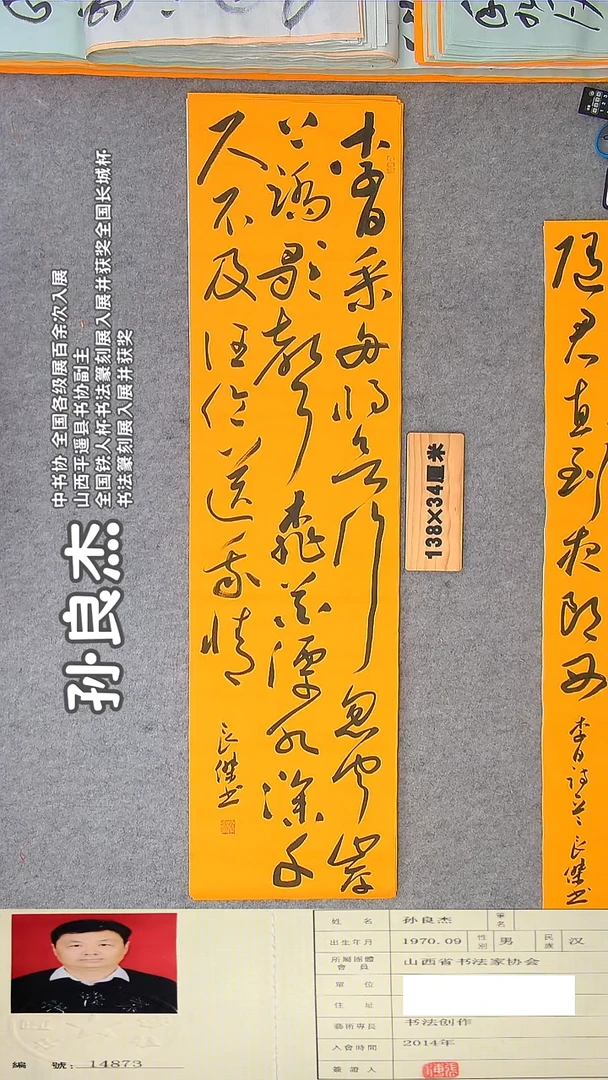 李白乘舟将欲行忽闻岸
上踏歌声桃花潭水深千
尺不及汪伦送我情
良傑书
138×34厘米
随君直到夜郎西
李白诗
良傑书
孙良杰
中书协 全国各级展百余次入展
山西平遥县书协副主
全国铁人杯书法篆刻展入展并获奖全国长城杯
书法篆刻展入展并获奖
姓名 孙良杰 筆名
出生年月 1970.09 性别 男 民族 汉
所屬團體會員 山西省书法家协会
單位
住址
藝術專長 书法创作
入會時間 2014年
簽證人
編號：14873